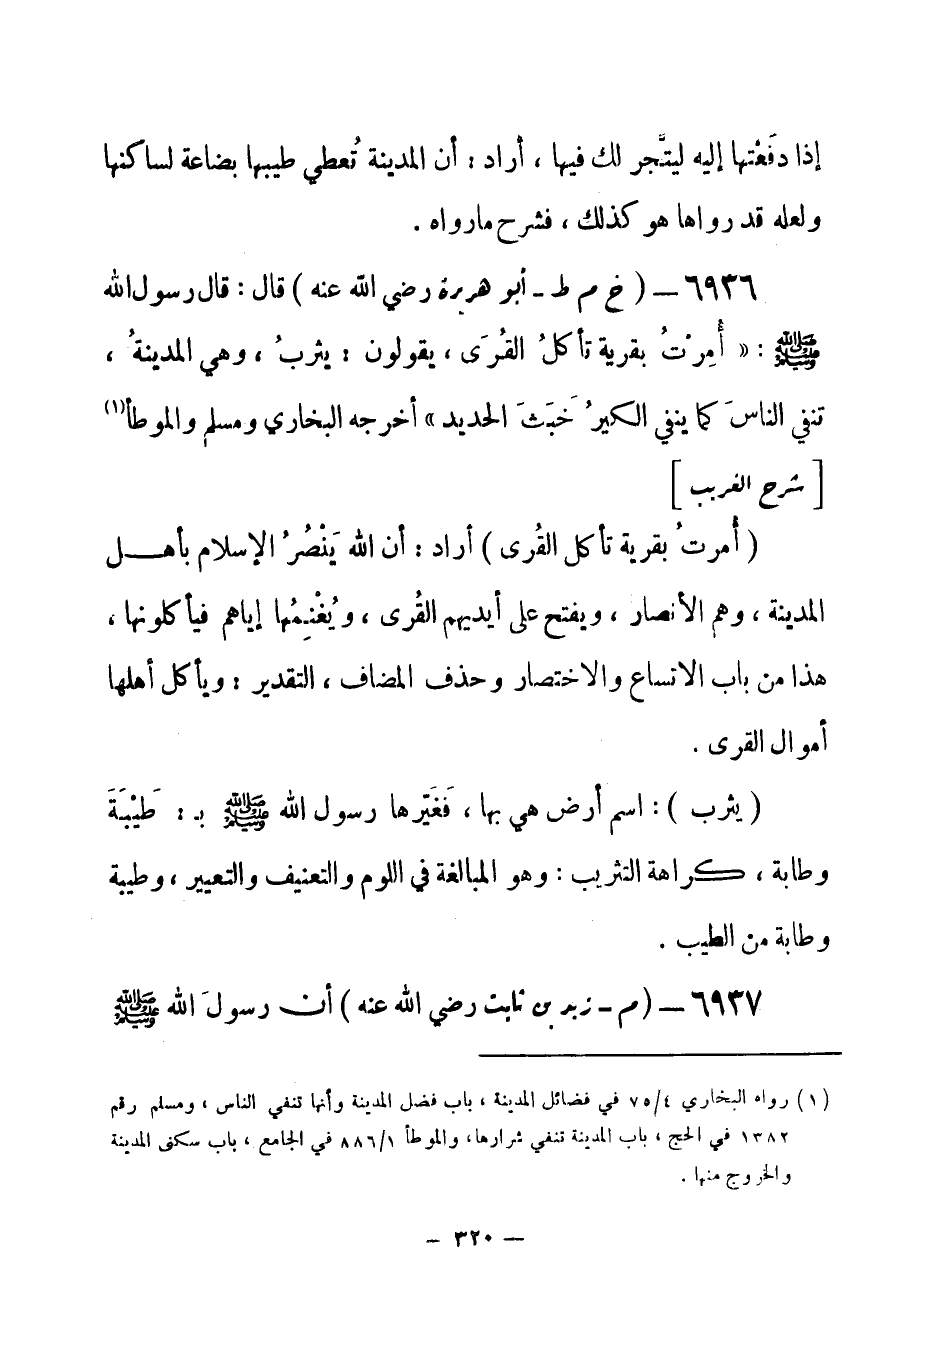 إذا دفَعْتها إليه ليتَّجر لك فيها ، أراد : أن المدينة تُعطي طيبها بضاعة لساكنها
ولعله قد رواها هو كذلك ، فشرح مارواه .
٦٩٣٦ — ( خ م ط - أبو هريرة رضي الله عنه ) قال : قال رسول الله
ﷺ : « أُمِرْتُ بقرية تأكلُ القُرَى ، يقولون : يثربُ ، وهي المدينةُ ،
تنفي الناسَ كما ينفي الكيرُ خَبَثَ الحديد » أخرجه البخاري ومسلم والموطأ (١)
[ شرح الغريب ]
( أُمرتُ بقرية تأكل القُرى ) أراد : أن الله يَنْصُرُ الإسلام بأهــل
المدينة ، وهم الأنصار ، ويفتح على أيديهم القُرى ، ويُغْنِمُها إياهم فيأكلونها ،
هذا من باب الاتساع والاختصار وحذف المضاف ، التقدير : ويأكل أهلها
أموال القرى .
( يثرب ) : اسم أرض هي بها ، فَغَيّرها رسول الله ﷺ بـ : طَيْبَةَ
وطابة ، كراهة التثريب : وهو المبالغة في اللوم والتعنيف والتعيير ، وطيبة
وطابة من الطيب .
٦٩٣٧ — ( م - زيد بن ثابت رضي الله عنه ) أن رسولَ الله ﷺ
(١) رواه البخاري ٧٥/٤ في فضائل المدينة ، باب فضل المدينة وأنها تنفي الناس ، ومسلم رقم
١٣٨٢ في الحج ، باب المدينة تنفي شرارها، والموطأ ٨٨٦/١ في الجامع ، باب سكنى المدينة
والخروج منها .
— ٣٢٠ —